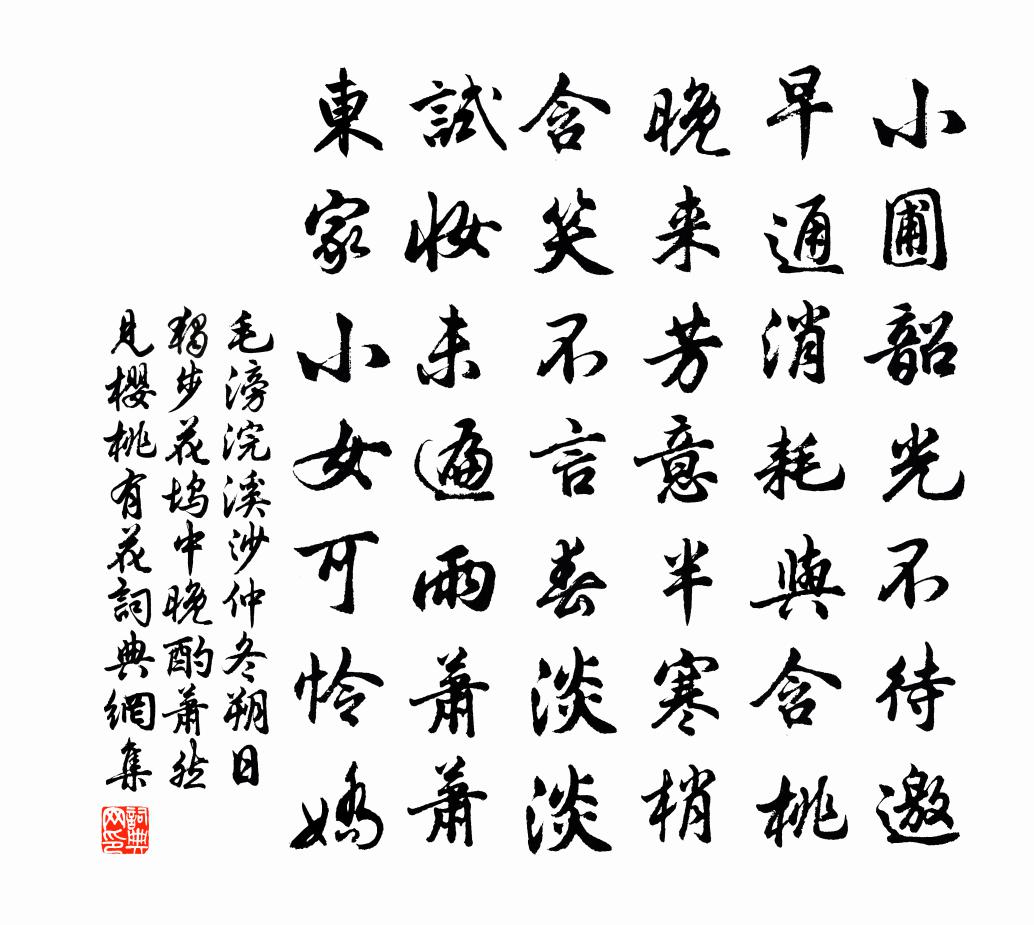 小圃韶光不待邀
早通消耗與含桃
晚来芳意半寒梢
含笑不言春淡淡
試妝未遍雨蕭蕭
東家小女可怜嬌
毛滂浣溪沙仲冬朔日
獨步花塢中晚酌蕭然
見櫻桃有花詞典網集
詞典网印